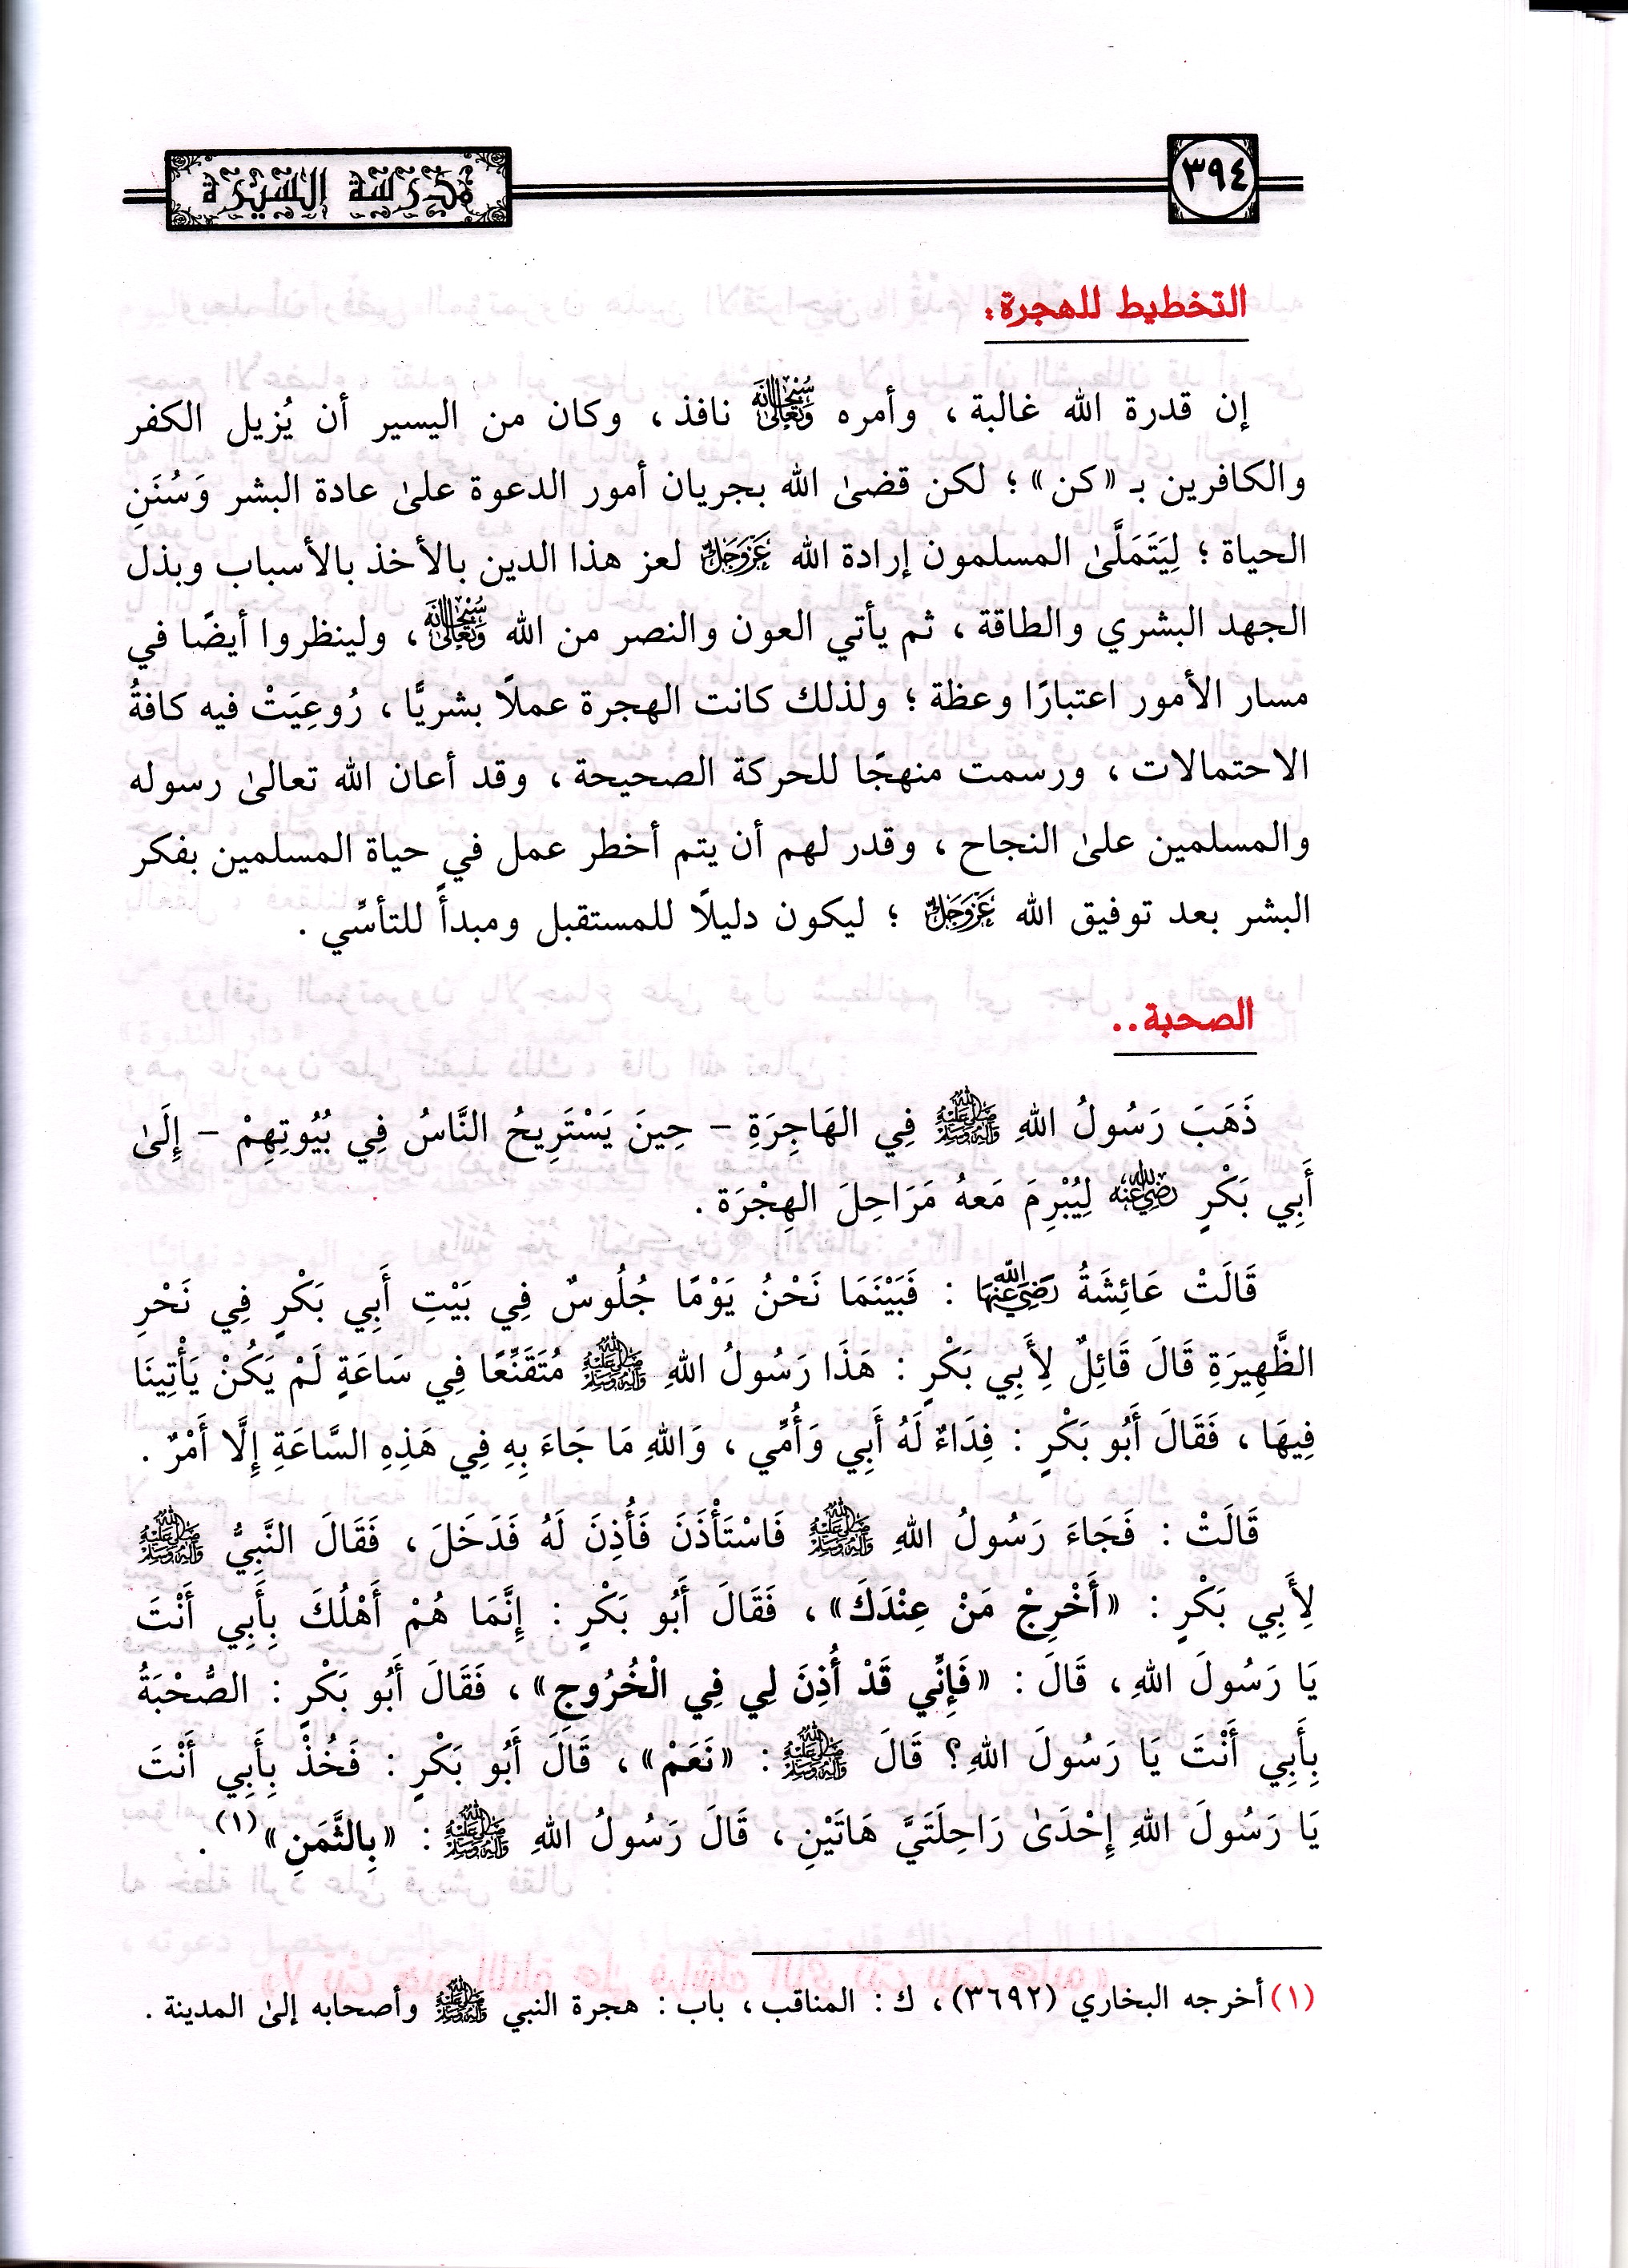 ٣٩٤
مدرسة السيرة
التخطيط للهجرة:
إن قدرة الله غالبة ، وأمره سُبْحَانَهُ وَتَعَالَىٰ نافذ ، وكان من اليسير أن يُزيل الكفر
والكافرين بـ «كن» ؛ لكن قضىٰ الله بجريان أمور الدعوة علىٰ عادة البشر وَسُنَنِ
الحياة ؛ لِيَتَمَلَّىٰ المسلمون إرادة الله عَزَّوَجَلَّ لعز هذا الدين بالأخذ بالأسباب وبذل
الجهد البشري والطاقة ، ثم يأتي العون والنصر من الله سُبْحَانَهُ وَتَعَالَىٰ ، ولينظروا أيضًا في
مسار الأمور اعتبارًا وعظة ؛ ولذلك كانت الهجرة عملًا بشريًّا ، رُوعِيَتْ فيه كافةُ
الاحتمالات ، ورسمت منهجًا للحركة الصحيحة ، وقد أعان الله تعالىٰ رسوله
والمسلمين علىٰ النجاح ، وقدر لهم أن يتم أخطر عمل في حياة المسلمين بفكر
البشر بعد توفيق الله عَزَّوَجَلَّ ؛ ليكون دليلًا للمستقبل ومبدأً للتأسِّي .
الصحبة..
ذَهَبَ رَسُولُ اللهِ ﷺ فِي الهَاجِرَةِ – حِينَ يَسْتَرِيحُ النَّاسُ فِي بُيُوتِهِمْ – إِلَىٰ
أَبِي بَكْرٍ رَضِيَ اللهُ عَنْهُ لِيُبْرِمَ مَعهُ مَرَاحِلَ الهِجْرَة .
قَالَتْ عَائِشَةُ رَضِيَ اللهُ عَنْهَا : فَبَيْنَمَا نَحْنُ يَوْمًا جُلُوسٌ فِي بَيْتِ أَبِي بَكْرٍ فِي نَحْرِ
الظَّهِيرَةِ قَالَ قَائِلٌ لِأَبِي بَكْرٍ : هَذَا رَسُولُ اللهِ ﷺ مُتَقَنِّعًا فِي سَاعَةٍ لَمْ يَكُنْ يَأْتِينَا
فِيهَا ، فَقَالَ أَبُو بَكْرٍ : فِدَاءٌ لَهُ أَبِي وَأُمِّي ، وَاللهِ مَا جَاءَ بِهِ فِي هَذِهِ السَّاعَةِ إِلَّا أَمْرٌ .
قَالَتْ : فَجَاءَ رَسُولُ اللهِ ﷺ فَاسْتَأْذَنَ فَأُذِنَ لَهُ فَدَخَلَ ، فَقَالَ النَّبِيُّ ﷺ
لِأَبِي بَكْرٍ : «أَخْرِجْ مَنْ عِنْدَكَ» ، فَقَالَ أَبُو بَكْرٍ : إِنَّمَا هُمْ أَهْلُكَ بِأَبِي أَنْتَ
يَا رَسُولَ اللهِ ، قَالَ : «فَإِنِّي قَدْ أُذِنَ لِي فِي الْخُرُوجِ» ، فَقَالَ أَبُو بَكْرٍ : الصُّحْبَةُ
بِأَبِي أَنْتَ يَا رَسُولَ اللهِ؟ قَالَ ﷺ : «نَعَمْ» ، قَالَ أَبُو بَكْرٍ : فَخُذْ بِأَبِي أَنْتَ
يَا رَسُولَ اللهِ إِحْدَىٰ رَاحِلَتَيَّ هَاتَيْنِ ، قَالَ رَسُولُ اللهِ ﷺ : «بِالثَّمَنِ» (١) .
(١) أخرجه البخاري (٣٦٩٢) ، ك : المناقب ، باب : هجرة النبي ﷺ وأصحابه إلىٰ المدينة .